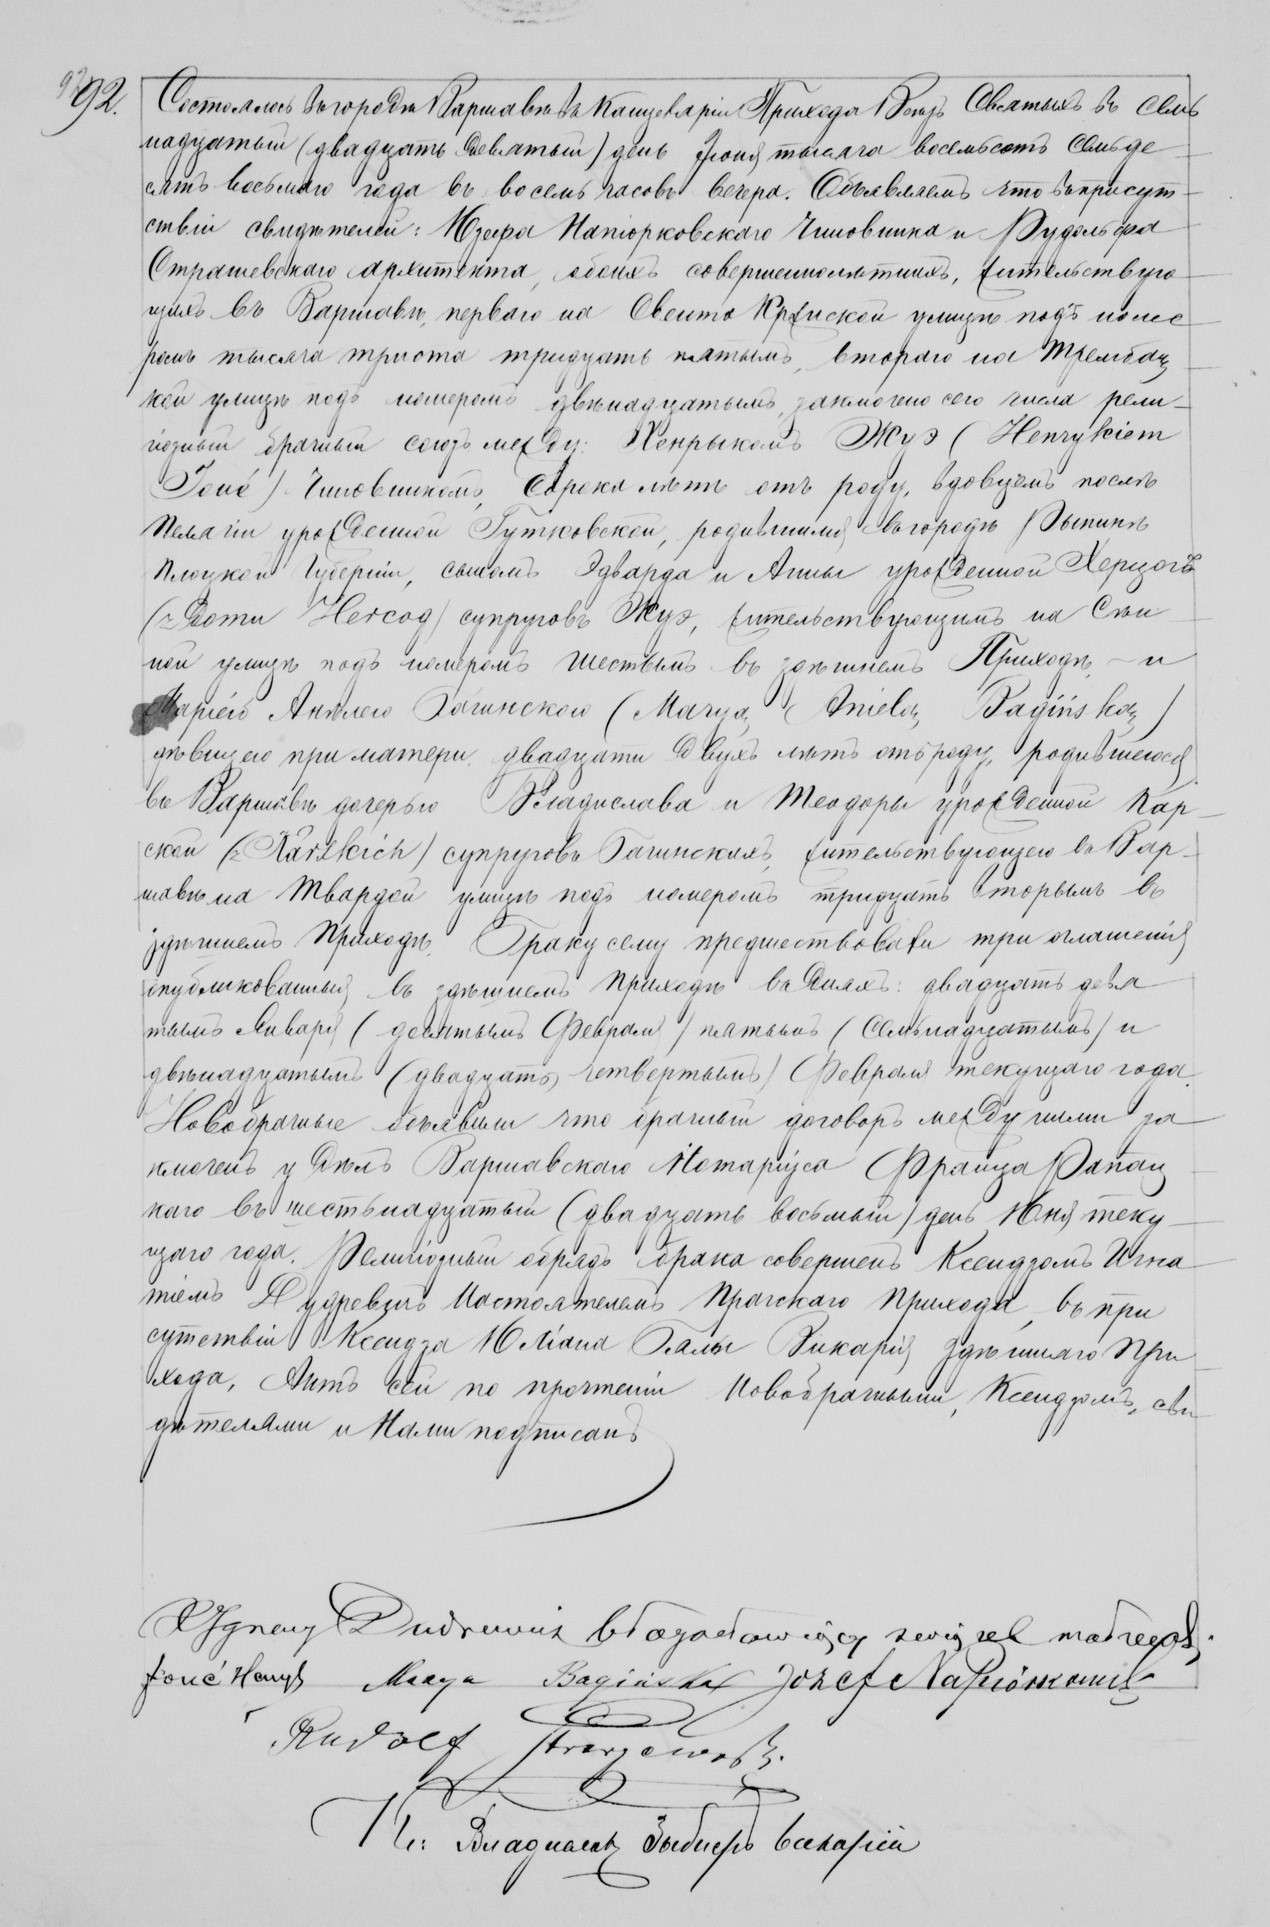 92.
Состоялось въ городѣ Варшавѣ въ Канцеляріи Прихода Всѣхъ Святыхъ въ семь
надцатый (двадцать девятый) день Іюня тысяча восемьсотъ семьде
сятъ восьмаго года въ восемь часовъ вечера. Объявляемъ что въ присут-
ствіи свидѣтелей: Юзефа Напіорковскаго Чиновника и Рудольфа
Страшевскаго архитекта, обоихъ совершеннолѣтнихъ, жительствую
щихъ въ Варшавѣ, перваго на Свенто Кржиской улицѣ подъ номе
ромъ тысяча триста тридцать пятымъ, втораго на Трембац
кой улицѣ подъ номеромъ двѣнадцатымъ, заключено сего числа рели-
гіозный брачный союзъ между: Хенрыкомъ Жуэ (Henrykiem
Joué) Чиновникомъ, сорока лѣтъ отъ роду, вдовцемъ послѣ
Пелагіи урожденной Гутковской, родившимся въ городѣ Рыпинѣ
Плоцкой Губерніи, сыномъ Эдварда и Анны урожденной Херцогъ
(z Domu Hercog) супруговъ Жуэ, жительствующимъ на Сѣн
ной улицѣ подъ номеромъ шестымъ въ здѣшнемъ Приходѣ - и
Маріею Анѣлею Багинскою (Maryą Anielą Bagińską)
дѣвицею при матери, двадцати двухъ лѣтъ отъ роду, родившеюся
въ Варшавѣ дочерью Владислава и Теодоры урожденной Кар-
ской (z Karskich) супруговъ Багинскихъ, жительствующею въ Вар-
шавѣ на Твардой улицѣ подъ номеромъ тридцать вторымъ въ
здѣшнемъ Приходѣ. Браку сему предшествовали три оглашенія
опубликованныя въ здѣшнемъ Приходѣ въ дняхъ: двадцать девя
тымъ Января (десятымъ Февраля) пятымъ (семьнадцатымъ) и
двѣнадцатымъ (двадцать четвертымъ) Февраля текущаго года.
Новобрачные объявили что брачный договоръ между ними за
ключенъ у Дѣлъ Варшавскаго Нотаріуса Франца Рапац
каго въ шестьнадцатый (двадцать восьмый) день Юня теку-
щаго года. Религіозный обрядъ брака совершенъ Ксендзомъ Игна
тіемъ Дудревичъ Настоятелемъ Прагскаго Прихода, въ при
сутствіи Ксендза Юліана Бялы Викарія здѣшняго При
хода, Актъ сей по прочтеніи Новобрачными, Ксендзомъ, сви
дѣтелями и Нами подписанъ
X Ignacy Dudrewicz błogosławiący związek małżeński.
Joué Henryk Marya Bagińska Józef Napiórkowski
Rudolf Straszewski.
Кс: Владиславъ